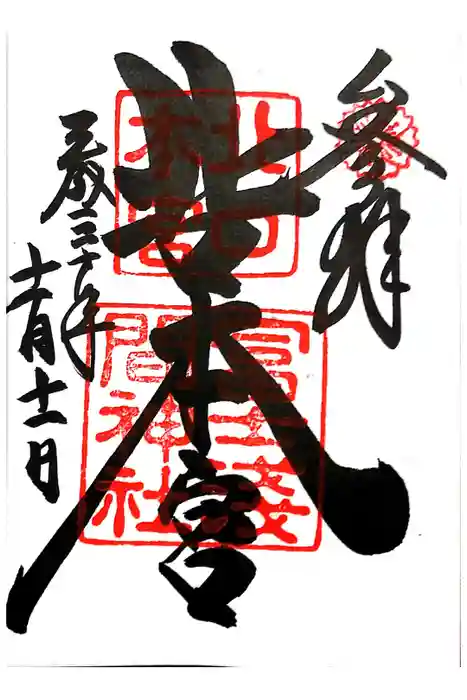 参拝
北口本宮
北口本宮
冨士浅間神社
平成三十年
十一月十一日